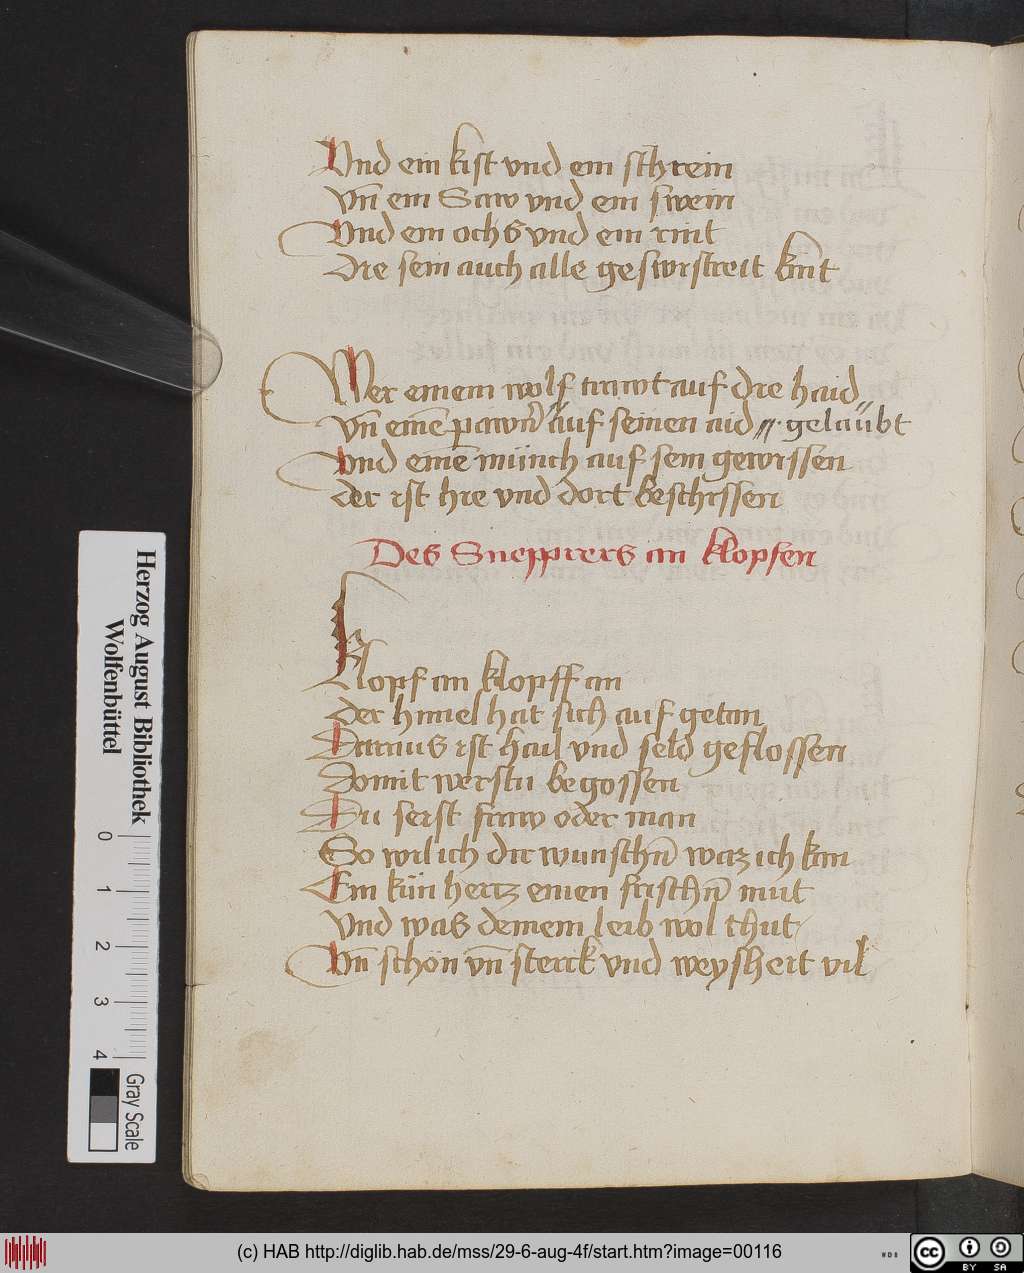 Vnd ein kist vnd ein schrein
Vn̄ ein Saw vnd ein swein
Vnd ein ochs vnd ein rint
Die sein auch alle geswistreit kint
Wer einem wolf trawt auf die haid
Vn̄ einē pawrn̄ auf seinen aid gelaubt
Vnd einē münch auf sein gewissen
der ist hie vnd dort beschissen
Des Snepprers an klopfen
Klopf an klopff an
der himel hat sich auf getan
Daraus ist hail vnd seld geflossen
Domit werstu begossen
Du seist fraw oder man
So wil ich dir wunschn̄ waz ich kan
Ein kün hertz einen frischn̄ mut
Vnd was deinem leib wol thut
Vn̄ schön vn̄ sterck vnd weysheit vil
Herzog August Bibliothek
Wolfenbüttel
0 1 2 3 4
Gray Scale
(c) HAB http://diglib.hab.de/mss/29-6-aug-4f/start.htm?image=00116
WDB
cc BY SA